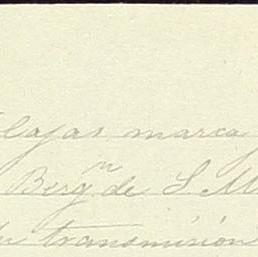 lajas marca
Bergⁿ de S M
transmisión